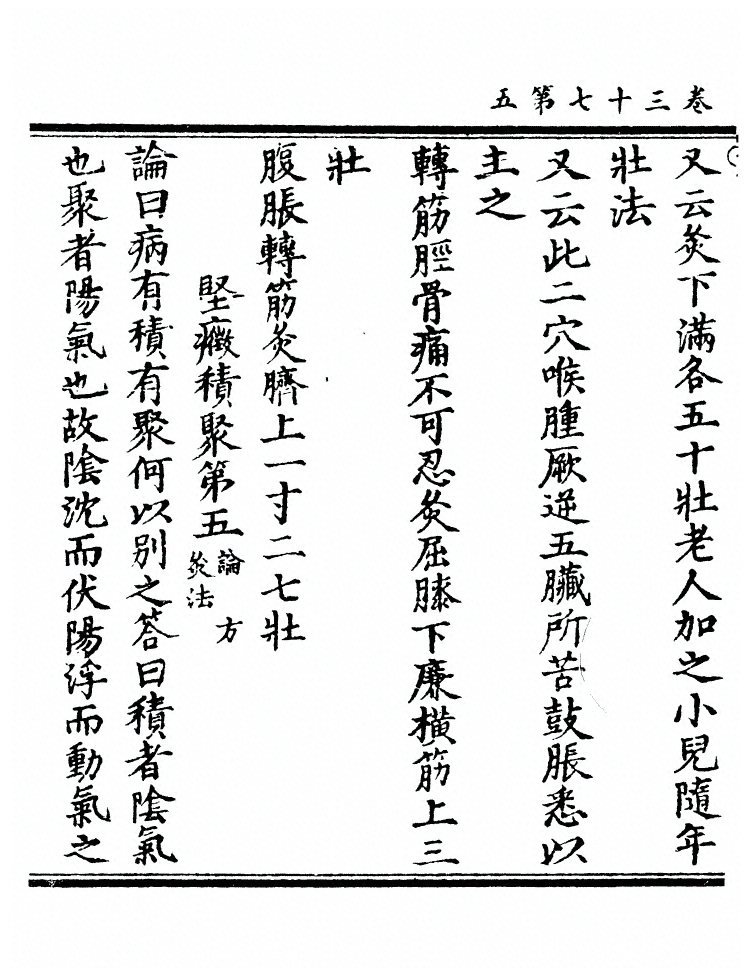 卷三十七第五
又云灸下滿各五十壯老人加之小兒隨年
壯法
又云此二穴喉腫厥逆五臟所苦鼓脹悉以
主之
轉筋脛骨痛不可忍灸屈膝下廉橫筋上三
壯
腹脹轉筋灸臍上一寸二七壯
堅癥積聚第五
論 方
灸法
論曰病有積有聚何以別之答曰積者陰氣
也聚者陽氣也故陰沈而伏陽浮而動氣之